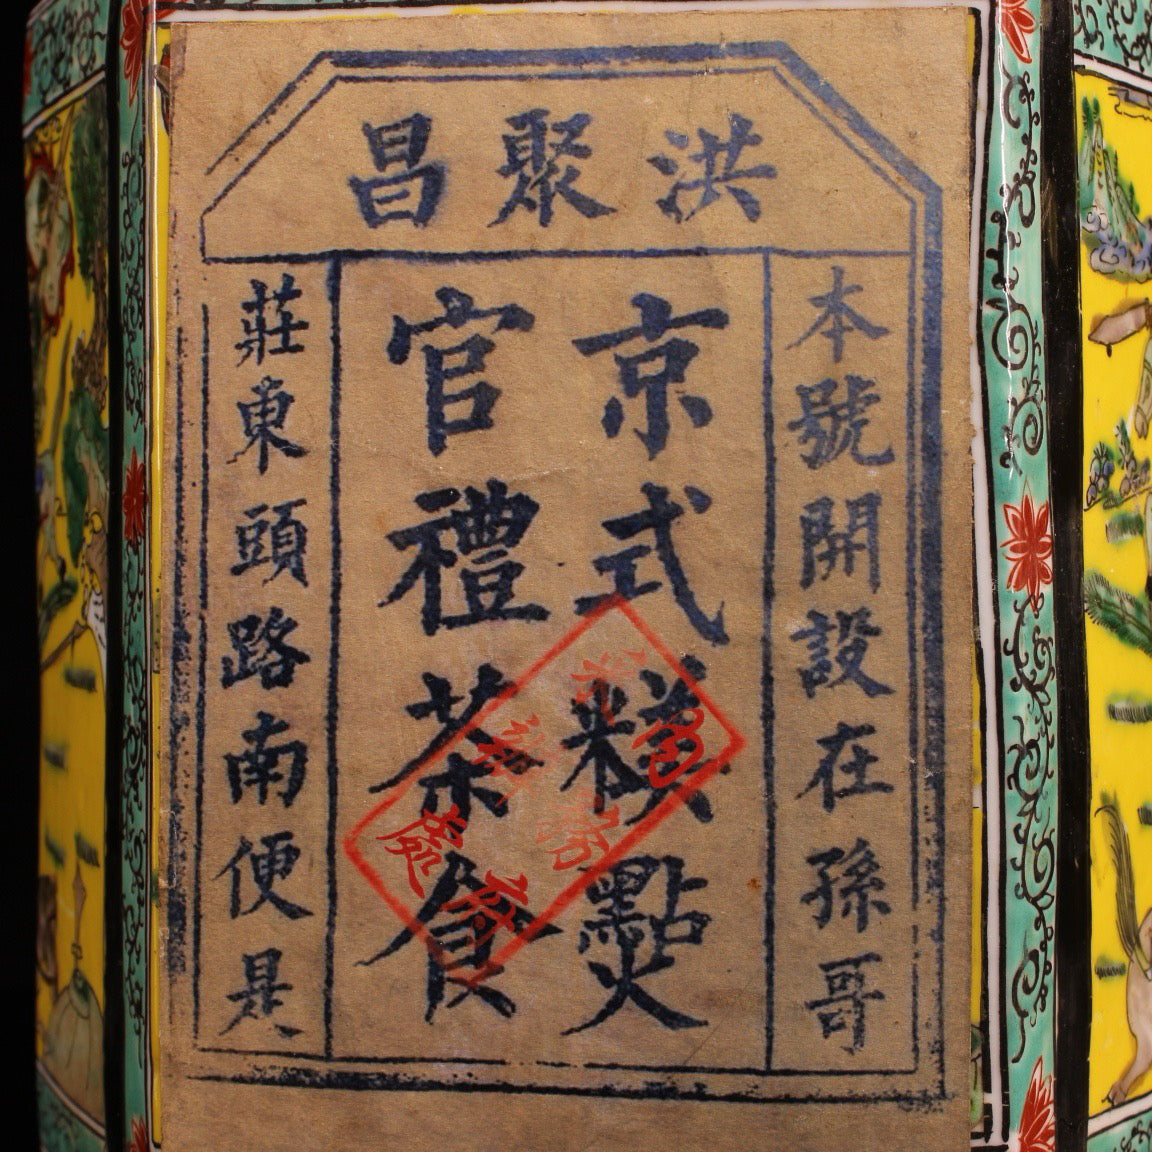 洪聚昌
本號開設在孫哥
京式糕點
官禮茶食
莊東頭路南便是
內務府
辦處